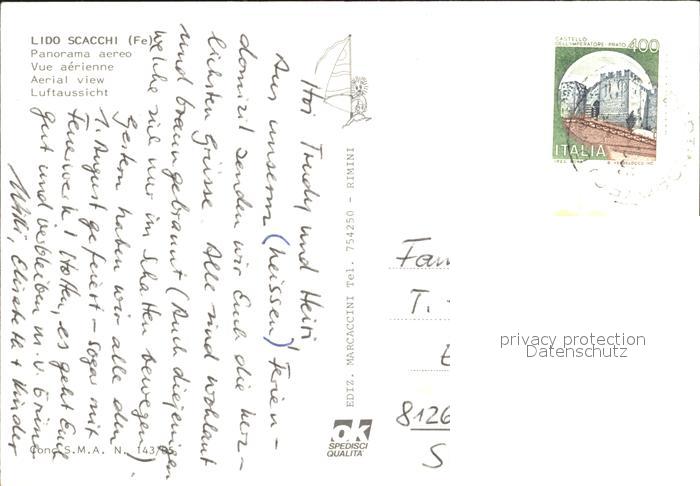 LIDO SCACCHI (Fe)
Panorama aereo
Vue aérienne
Aerial view
Luftaussicht
Hoi Trudy und Heiri!
Aus unserm (heissen) Ferien-
domizil senden wir Euch die herz-
lichsten Grüsse. Alle sind wohlauf
und braungebrannt (Auch diejenigen
welche sich nur im Schatten bewegen).
Gestern haben wir alle den
1. August gefeiert - sogar mit
Feuerwerk! Hoffen, es geht Euch
gut und verbleiben m. v. Grüssen
Willi, Elisabeth + Kinder
Conc. S.M.A. N. 143/85
EDIZ. MARCACCINI Tel. 754250 - RIMINI
ok
SPEDISCI
QUALITA'
CASTELLO
DELL'IMPERATORE-PRATO 400
ITALIA
Fam
T.
8126
S
privacy protection
Datenschutz